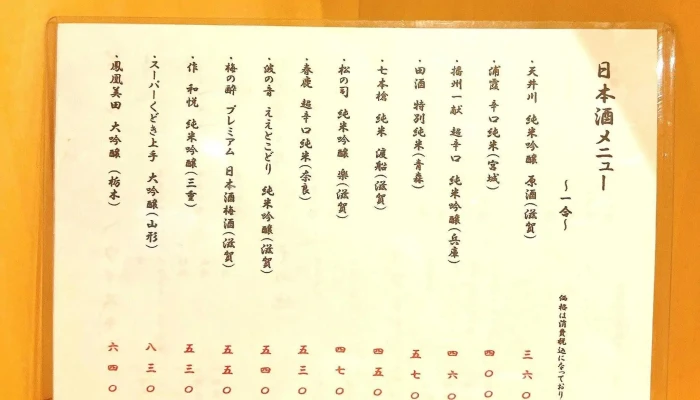 日本酒メニュー
～一合～
価格は消費税込になっており
・天井川 純米吟醸 原酒(滋賀) 三六〇
・浦霞 辛口純米(宮城) 四〇〇
・播州一献 超辛口 純米吟醸(兵庫) 四六〇
・田酒 特別純米(青森) 五七〇
・七本槍 純米 渡船(滋賀) 四五〇
・松の司 純米吟醸 楽(滋賀) 四七〇
・春鹿 超辛口純米(奈良) 五三〇
・波の音 ええとこどり 純米吟醸(滋賀) 五四〇
・梅の酔 プレミアム 日本酒梅酒(滋賀) 五五〇
・作 和悦 純米吟醸(三重) 五三〇
・スーパーくどき上手 大吟醸(山形) 八三〇
・鳳凰美田 大吟醸(栃木) 六四〇